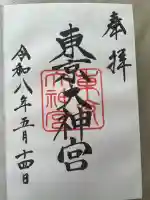 奉拝
東京大神宮
東京
大神宮
令和八年五月十四日